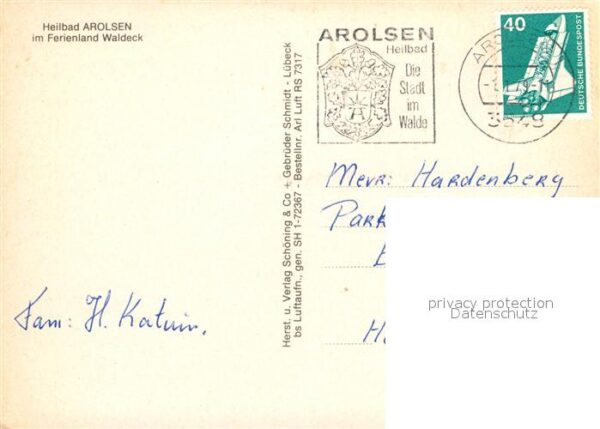 Heilbad AROLSEN
im Ferienland Waldeck
Herst. u. Verlag Schöning & Co + Gebrüder Schmidt - Lübeck
bs Luftaufn., gen. SH 1-72367 - Bestellnr. Arl Luft RS 7317
AROLSEN
Heilbad
Die
Stadt
im
Walde
A
AROL
3548
40
DEUTSCHE BUNDESPOST
Mevr: Hardenberg
Park
privacy protection
Datenschutz
Fam: H. Katuin.